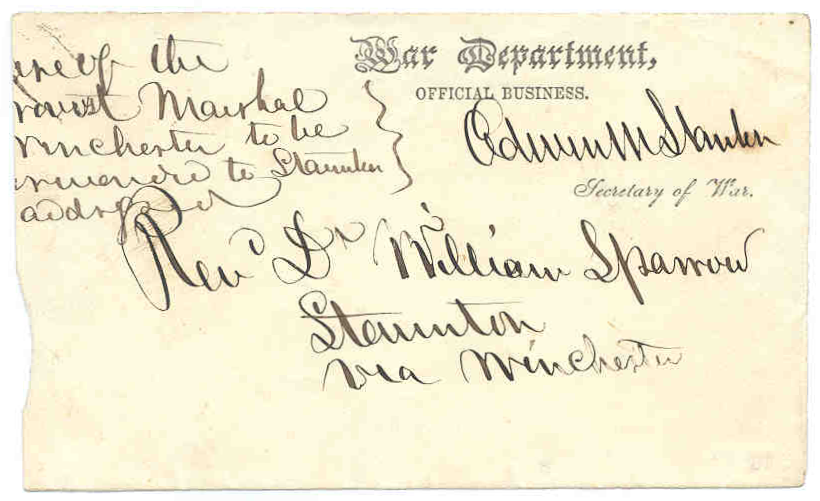 are of the
rovost Marshal
inchester to be
orwarded to Staunton
addressed
War Department,
OFFICIAL BUSINESS.
Edwin M Stanton
Secretary of War.
Revd Dr William Sparrow
Staunton
via Winchester